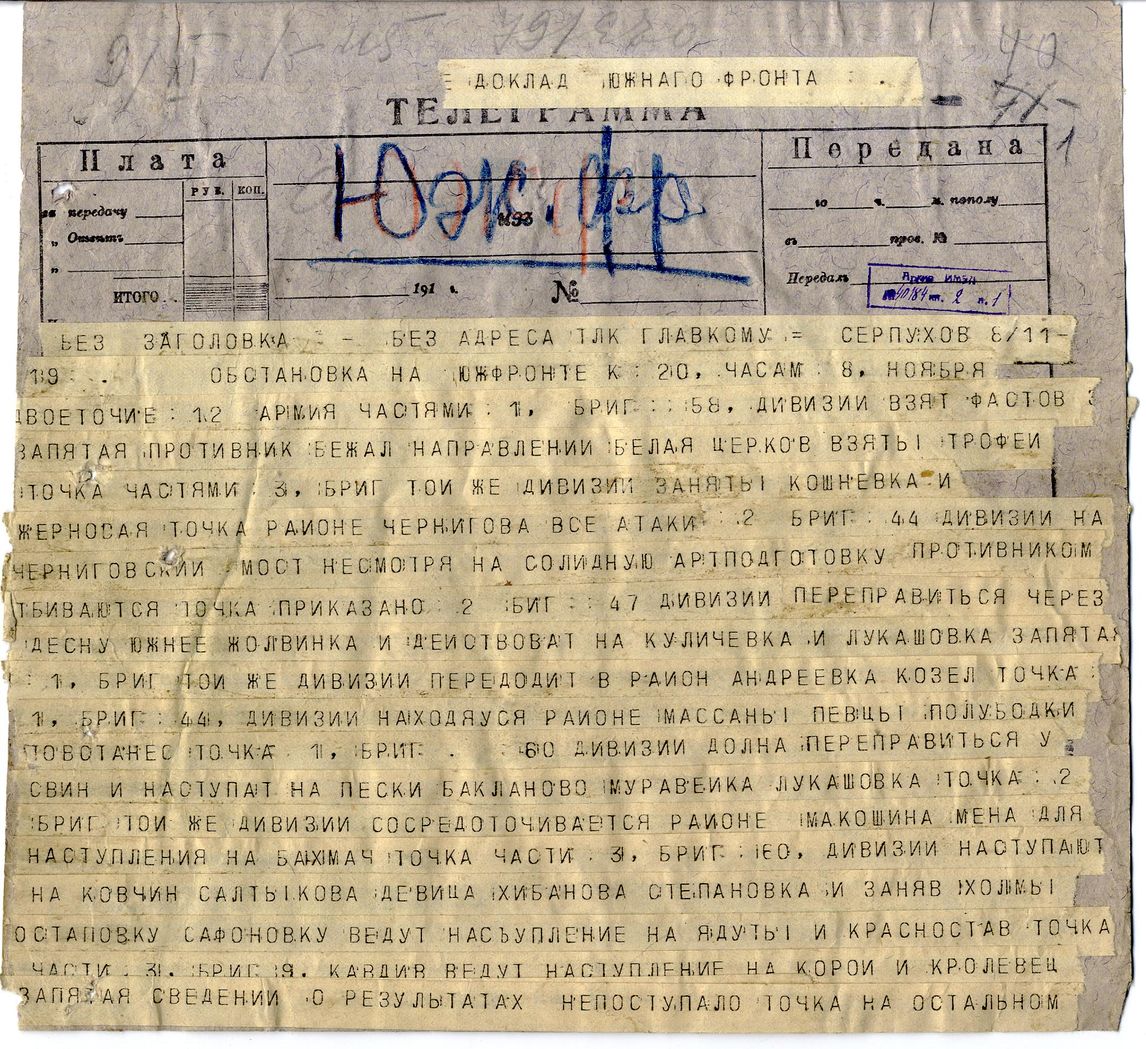 9/XI 1-45
40
ДОКЛАД ЮЖНАГО ФРОНТА .
ТЕЛЕГРАММА
1
Плата
Юж. фр
Передана
РУБ. КОП.
за передачу
„ Ответъ
„
ИТОГО
М93
191 г.
№
го ч. м. пополу
въ пров. №
Передалъ
2 л. 1
БЕЗ ЗАГОЛОВКА - БЕЗ АДРЕСА ТЛК ГЛАВКОМУ = СЕРПУХОВ 8/11-
19 . ОБСТАНОВКА НА ЮЖФРОНТЕ К 20, ЧАСАМ 8, НОЯБРЯ
ДВОЕТОЧИЕ : 12 АРМИЯ ЧАСТЯМИ : 1, БРИГ : : 58, ДИВИЗИИ ВЗЯТ ФАСТОВ З
ЗАПЯТАЯ ПРОТИВНИК БЕЖАЛ НАПРАВЛЕНИИ БЕЛАЯ ЦЕРКОВ ВЗЯТЫ ТРОФЕИ
ТОЧКА ЧАСТЯМИ : 3, БРИГ ТОИ ЖЕ ДИВИЗИИ ЗАНЯТЫ КОШНЕВКА И
ЖЕРНОВАЯ ТОЧКА РАИОНЕ ЧЕРНИГОВА ВСЕ АТАКИ : 2 БРИГ : 44 ДИВИЗИИ НА
ЧЕРНИГОВСКИЙ МОСТ НЕСМОТРЯ НА СОЛИДНУЮ АРТПОДГОТОВКУ ПРОТИВНИКОМ
ТБИВАЮТСЯ ТОЧКА ПРИКАЗАНО : 2 БИГ : : 47 ДИВИЗИИ ПЕРЕПРАВИТЬСЯ ЧЕРЕЗ
ДЕСНУ ЮЖНЕЕ ЖОЛВИНКА И ДЕИСТВОВАТ НА КУЛИЧЕВКА И ЛУКАШОВКА ЗАПЯТАЯ
: 1, БРИГ ТОИ ЖЕ ДИВИЗИИ ПЕРЕДОДИТ В РАИОН АНДРЕЕВКА КОЗЕЛ ТОЧКА :
1, БРИГ : 44, ДИВИЗИИ НАХОДЯУСЯ РАИОНЕ МАССАНЫ ПЕВЦЫ ПОЛУБОДКИ
ПОВОТАНЕС ТОЧКА 1, БРИГ . 60 ДИВИЗИИ ДОЛНА ПЕРЕПРАВИТЬСЯ У
СВИН И НАСТУПАТ НА ПЕСКИ БАКЛАНОВО МУРАВЕИКА ЛУКАШОВКА ТОЧКА : 2
БРИГ ТОИ ЖЕ ДИВИЗИИ СОСРЕДОТОЧИВАЕТСЯ РАИОНЕ МАКОШИНА МЕНА ДЛЯ
НАСТУПЛЕНИЯ НА БАХМАЧ ТОЧКА ЧАСТИ : 3, БРИГ : 60, ДИВИЗИИ НАСТУПАЮТ
НА КОВЧИН САЛТЫКОВА ДЕВИЦА ХИБАНОВА СТЕПАНОВКА И ЗАНЯВ ХОЛМЫ
ОСТАПОВКУ САФОНОВКУ ВЕДУТ НАСЪУПЛЕНИЕ НА ЯДУТЫ И КРАСНОСТАВ ТОЧКА
ЧАСТИ : 3, БРИГ 9, КАВДИВ ВЕДУТ НАСТУПЛЕНИЕ НА КОРОИ И КРОЛЕВЕЦ
ЗАПЯТАЯ СВЕДЕНИИ О РЕЗУЛЬТАТАХ НЕПОСТУПАЛО ТОЧКА НА ОСТАЛЬНОМ